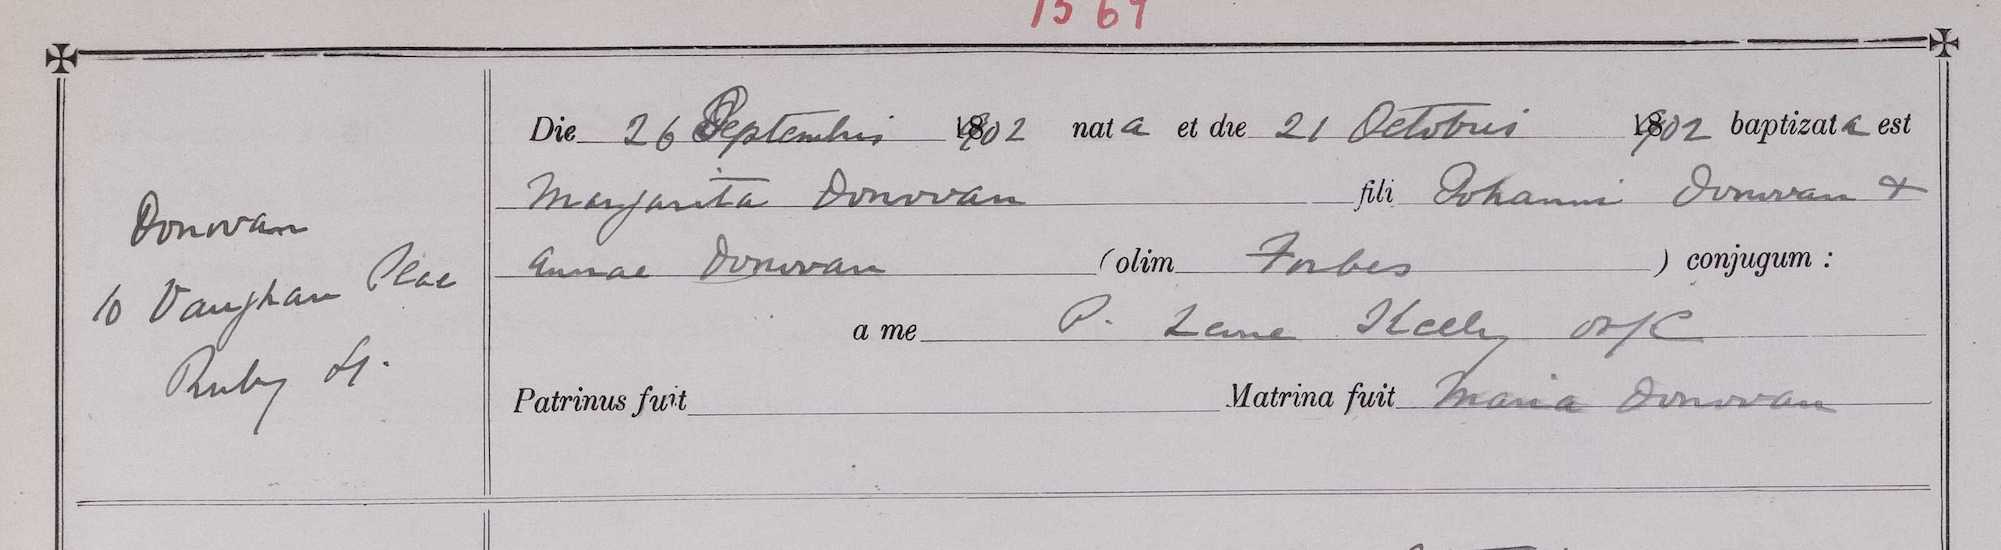 1567
Donovan
10 Vaughan Place
Ruby St.
Die 26 Septembris 1902 nata et die 21 Octobris 1902 baptizata est
Margarita Donovan fili Johanni Donovan +
Annae Donovan (olim Forbes ) conjugum :
a me P. Kelly
Patrinus fuit Matrina fuit Maria Donovan